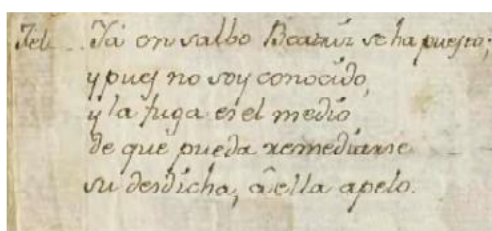 Fel. Ya en salbo Beatriz se ha puesto;
y pues no soy conocido,
y la fuga es el medio
de que pueda remediarse
su desdicha, â ella apelo.